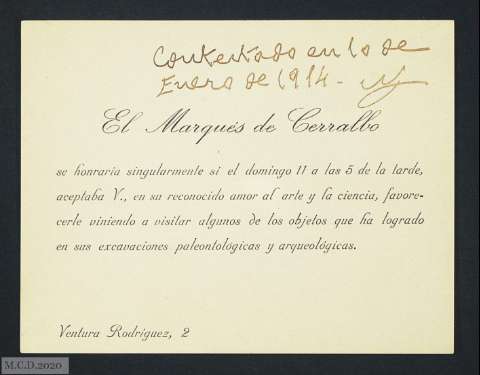 Contestado en 10 de
Enero de 1914-
El Marqués de Cerralbo
se honraría singularmente si el domingo 11 a las 5 de la tarde,
aceptaba V., en su reconocido amor al arte y la ciencia, favore-
cerle viniendo a visitar algunos de los objetos que ha logrado
en sus excavaciones paleontológicas y arqueológicas.
Ventura Rodríguez, 2
M.C.D.2020